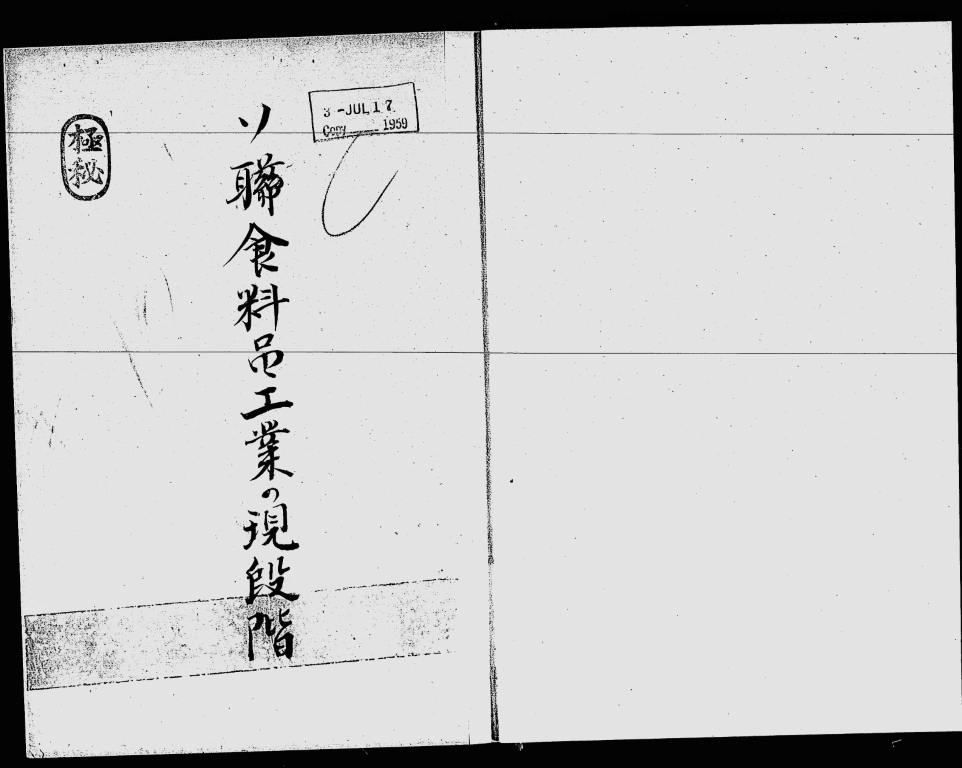 3 -JUL 17
Copy 1959
ソ聯食料品工業の現段階
極秘